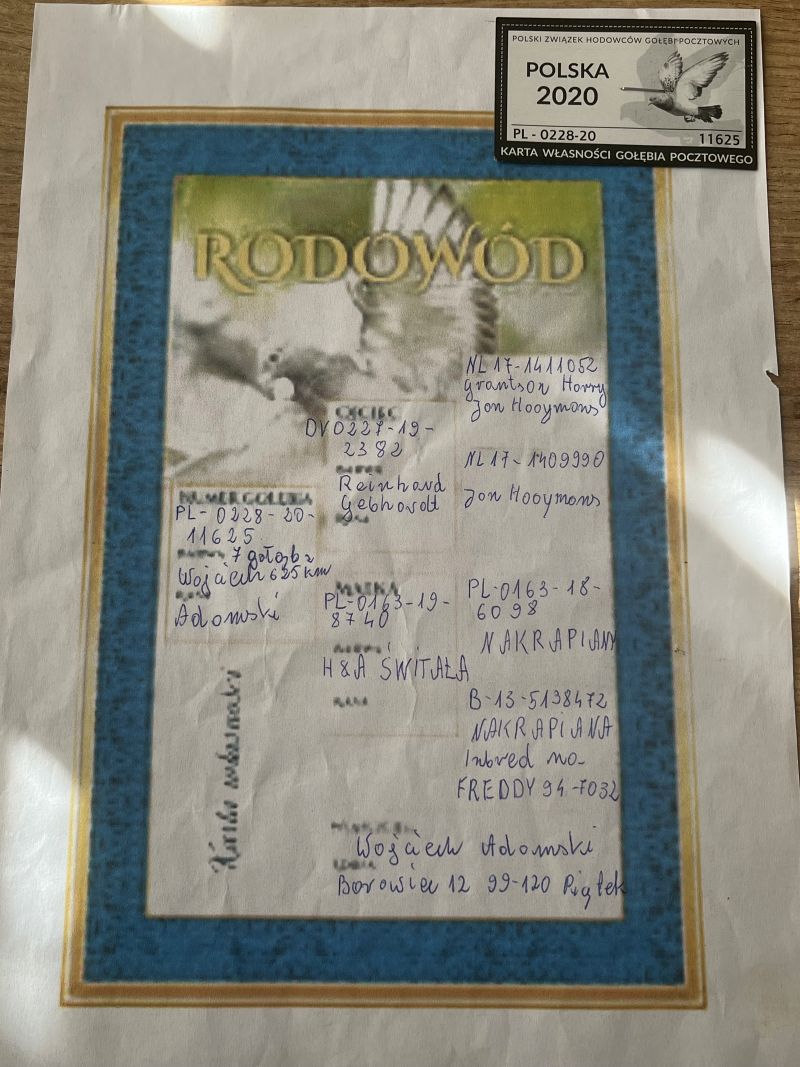 POLSKI ZWIĄZEK HODOWCÓW GOŁĘBI POCZTOWYCH
POLSKA
2020
PL - 0228-20
11625
KARTA WŁASNOŚCI GOŁĘBIA POCZTOWEGO
RODOWÓD
NL 17-1411052
grantson Harry
Jon Hooymons
OJCIEC
DV0227-19-
2382
Reinhard
Gebhardt
NL17-1409990
Jon Hooymons
NUMER GOŁĘBIA
PL-0228-20-
11625
7 gołąb z
Wojciech 625 km
Adomski
MATKA
PL-0163-19-
8740
H&A ŚWITAŁA
RASA
PL-0163-18-
6098
NAKRAPIANY
B-13-5138472
NAKRAPIANA
Inbred na
FREDDY 94-7032
Wojciech Adomski
Borowiec 12 99-120 Piątek